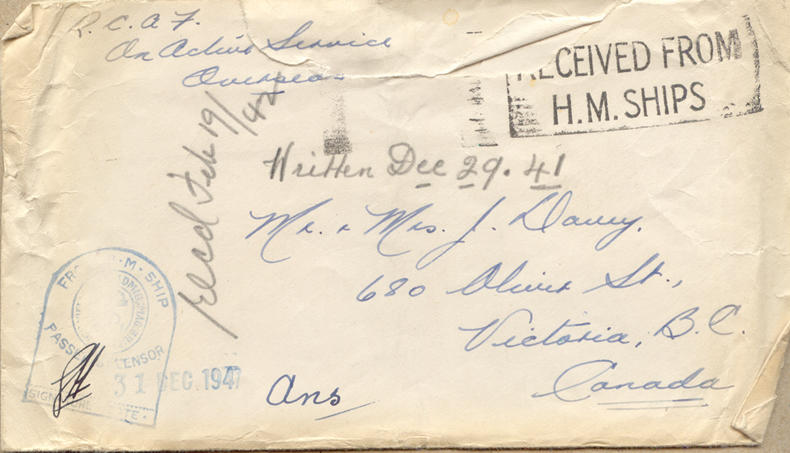 R. C. A. F.
On Active Service
Overseas
RECEIVED FROM
H.M. SHIPS
Recd Feb 19/42
Written Dec 29. 41
Mr. & Mrs. J. Davey.
680 Oliver St.,
Victoria, B.C.
Canada
Ans
FROM H.M. SHIP
PASSED CENSOR
31 DEC. 1941